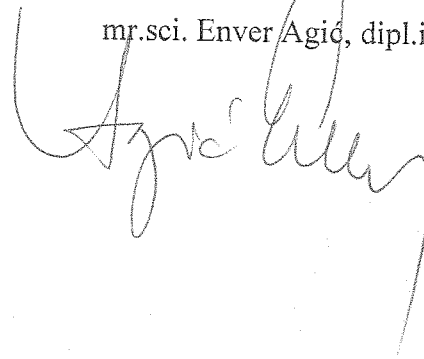 mr.sci. Enver Agić, dipl.i
Agić Enver